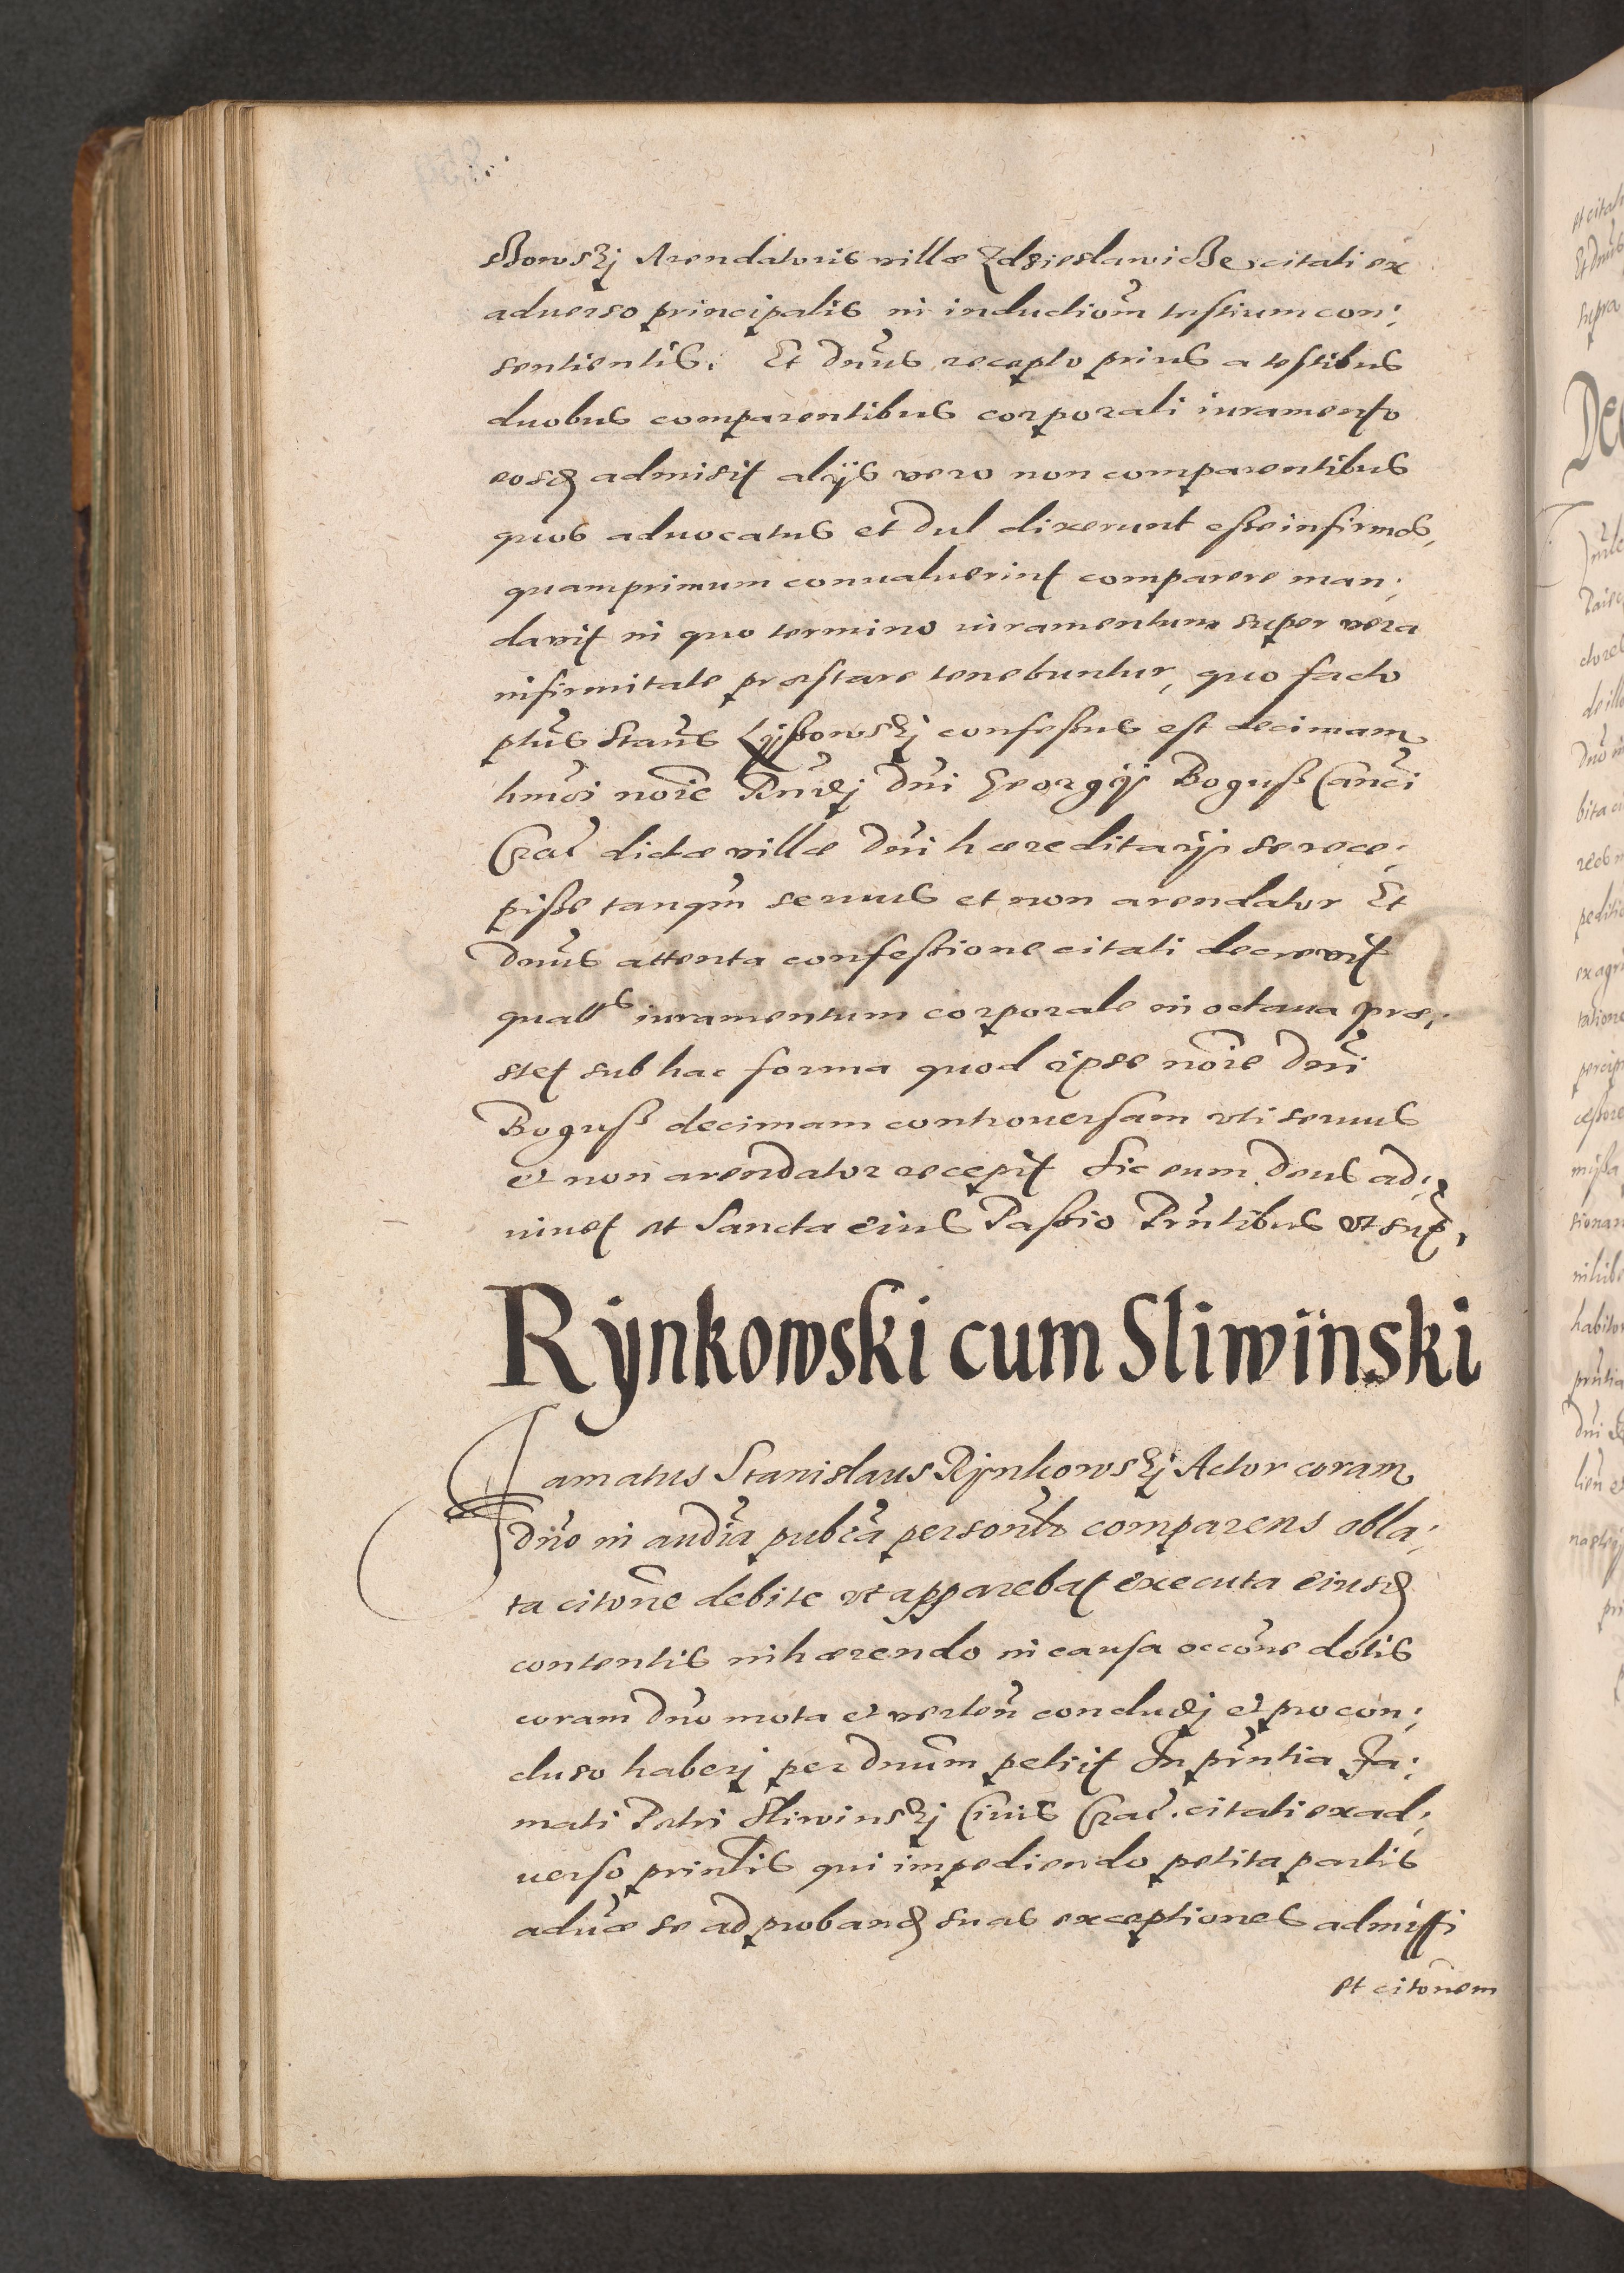 ssowskj Arendatoris villæ Zdzieslawicze citati ex
aduerso principalis in inductiom̃ testium con;
sentientis. Et Dnus recepto prius a testibus
duobus comparentibus corporali iuramento
eosq admisit alijs vero non comparentibus
quos aduocatus et dul dixerunt esse infirmos,
quamprimum conualuerint comparere man;
davit in quo termino iuramentum super vera
infirmitate præstare tenebuntur, quo facto
ptus Staus Lyssowskj confessus est decimam
hmoi noie Rndj Dni Georgij Boguss Canci
Crac dictæ villæ Dni hæreditarij se rece;
pisse tanqm seruus et non arendator Et
Dnus attenta confessione citati decrevit
quatts iuramentum corporale in octaua præ;
stet sub hac forma quod ipse noie Dni
Boguss decimam controuersam vti seruus
et non arendator recepit Sic eum Deus ad;
iuuet et Sancta eius Passio Pñtibus vt sup.
Rÿnkowski cum Sliwïnski
Famatus Stanislaus Rÿnkowskj Actor coram
dno in audia pubca personlr comparens obla;
ta citone debite vt apparebat executa eiusq
contentis inhærendo in causa occone dotis
coram Dno mota et verten concludj et pro con;
cluso haberj per Dnum petiit In pñtia Fa;
mati Petri Sliwinskj Ciuis Crac. citati ex ad;
uerso prinlis qui impediendo petita partis
aduæ se ad proband suas exceptiones admitti
et citonem